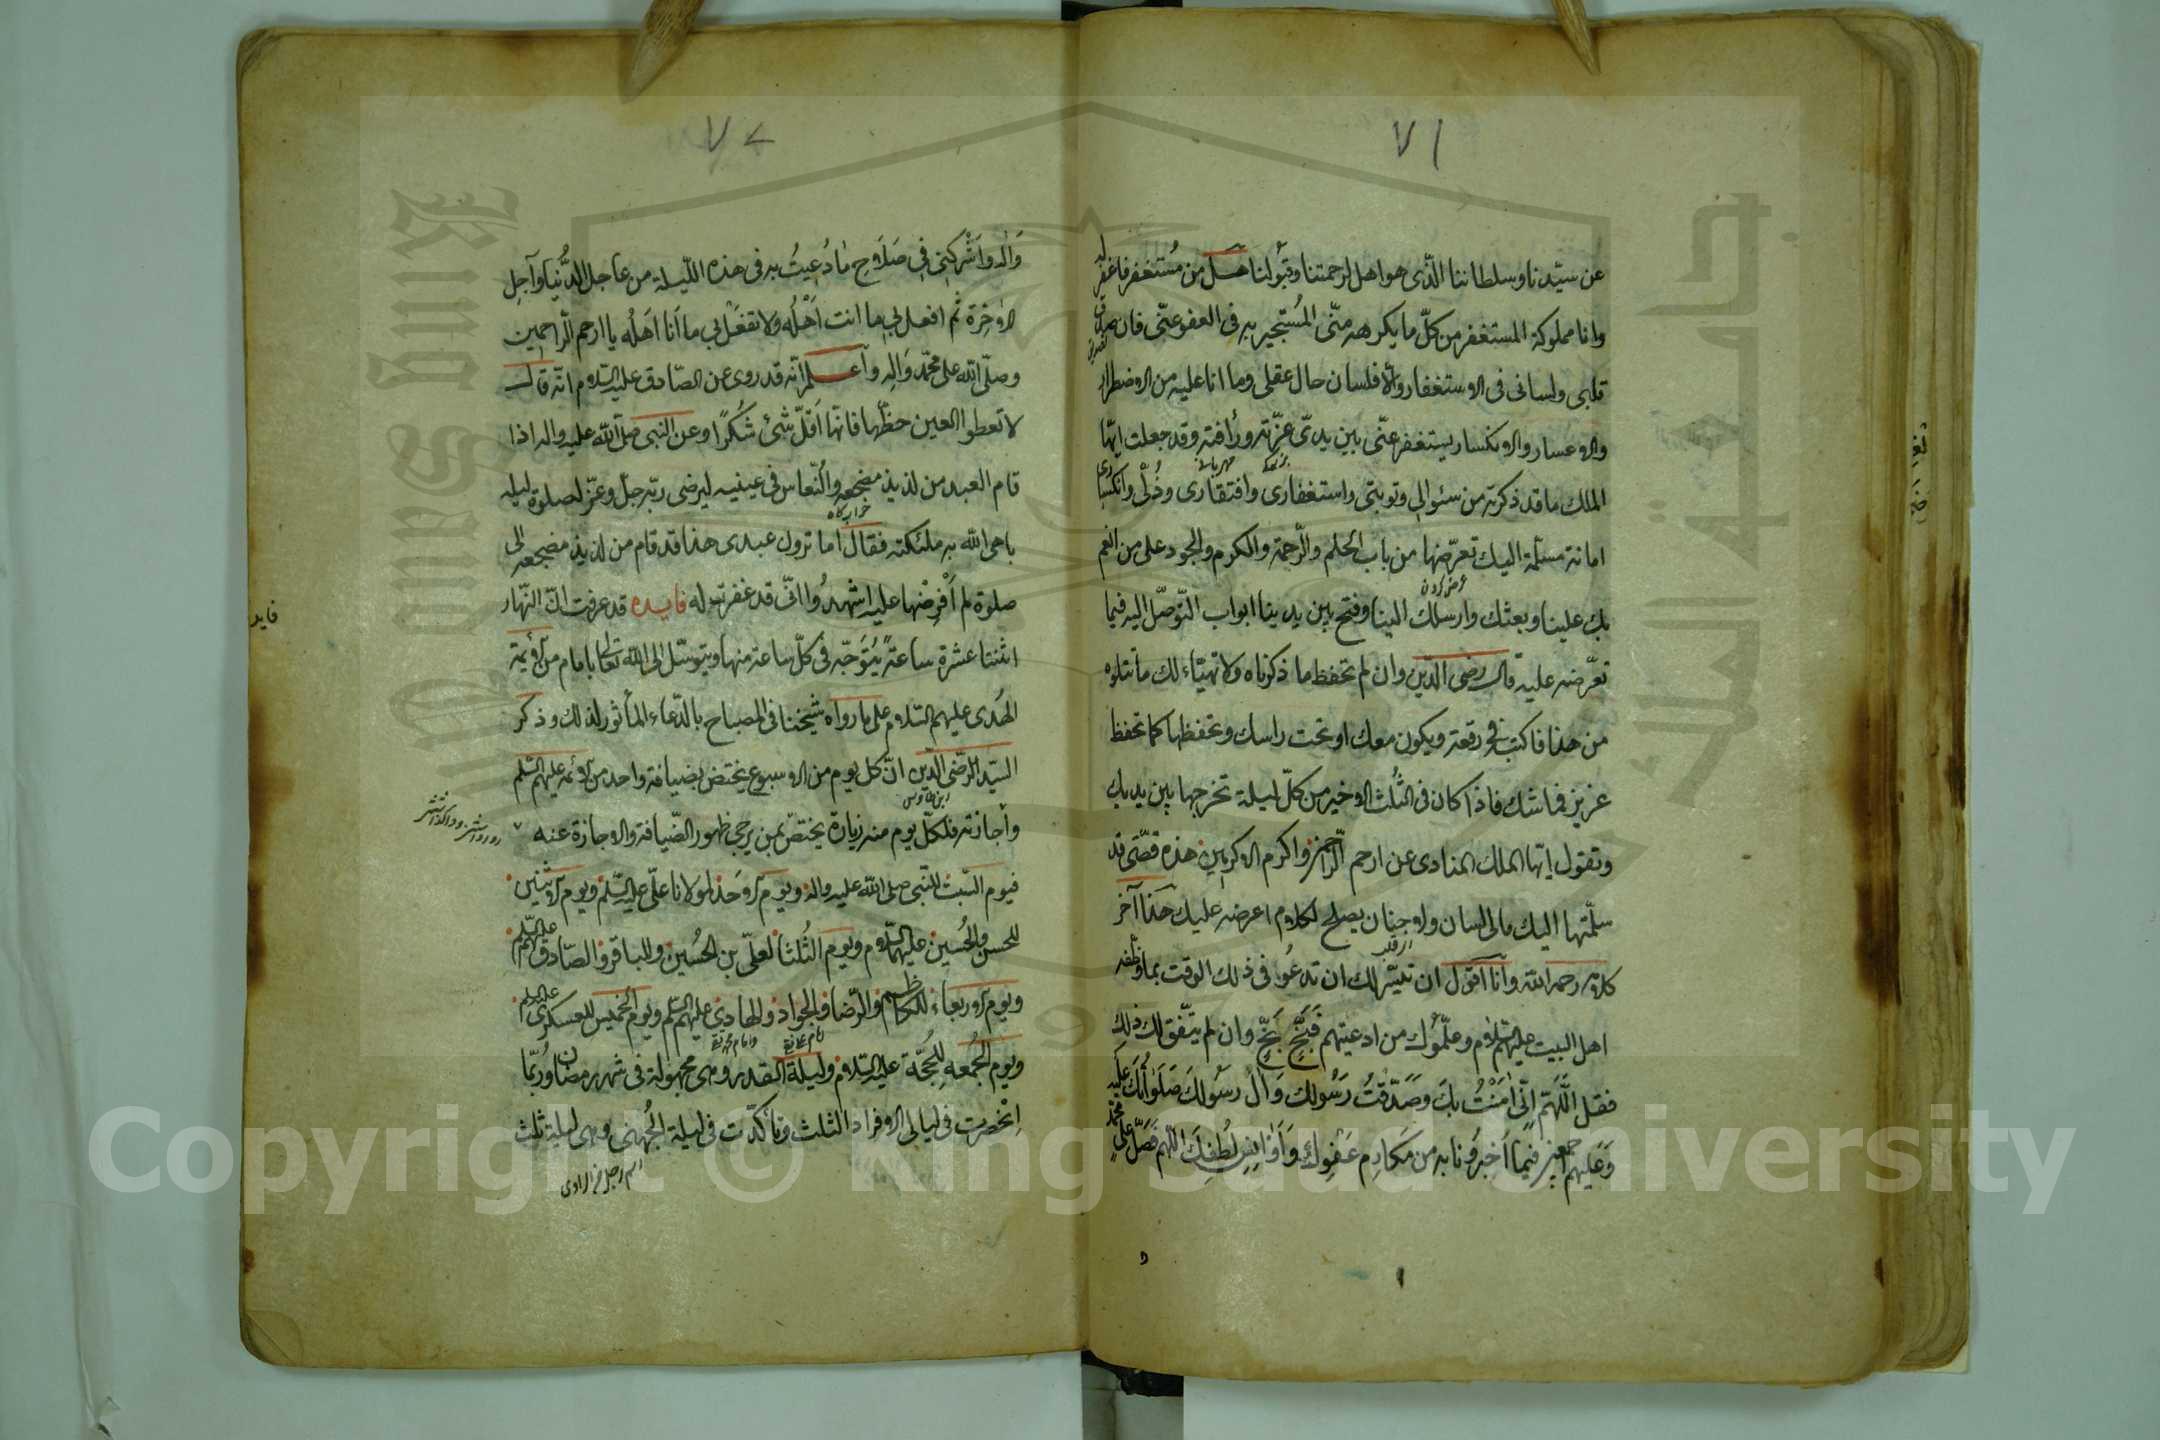 ٧١
عن سيّدنا وسلطاننا الذّى هو اهل لرحمتنا وقبولنا هل من مُستغفر فاغفر له
وانا مملوكه المستغفر من كلّ ما يكرهه منّى المُستجير به فى العفو عنّى فان صدق
قلبى ولسانى فى الاستغفار والّا فلسان حال عقلى وما انا عليه من الاضطرار
والاعسار والانكسار يستغفر عنّى بين يدىّ عزّته ورأفته وقد جعلت ايّها
الملك ما قد ذكرته من سئوالى وتوبتى واستغفارى وافتقارى وذُلّى وانكسارى
امانة مسلّمة اليك تعرّضها من باب الحلم والرّحمة والكرم والجود على من انعم
بك علينا وبعثك وارسلك الينا وفتح بين يدينا ابواب التّوصّل اليه فيما
تعرّضه عليه قال رضى الدّين وان لم تحفظ ما ذكرناه ولا تهيّاء لك ما تتلوه
من هذا فاكتب فى رقعة ويكون معك او تحت راسك وتحفظها كما تحفظ
عزيز قماشك فاذا كان فى الثّلث الاخير من كلّ ليلة تخرجها بين يديك
وتقول ايّها الملك المنادى عن ارحم الرّاحمين واكرم الاكرمين هذه قصّتى قد
سلّمتها اليك ما لى لسان ولا جنان يصلح لكلام اعرضه عليك هذا آخر
كلامه رحمه الله وانا اقول ان تيسّر لك ان تدعُوا فى ذلك الوقت بما وظّفه
اهل البيت عليهم السّلام وعلّموك من ادعيتهم فَبَخّ بَخّ وان لم يتّفق لك ذلك
فقل اللّهَمّ اِنّى اٰمَنْتُ بِكَ وَصَدّقتُ رَسُولك وَاٰلَ رسُولكَ صَلَوٰاتُكَ عليه
وَعَليهِم اجمعين فيما اَخبرُونا به من مَكارِم عَفْوِكَ وَاَوٰانِسِ لُطفِكَ اللّهم فَصَلّ على محمّد
٧٢
وَاٰلِه واَشْرِكْنِى فِى صَلَاحِ مٰا دُعِيتُ به فى هذه اللّيلة من عاجل الدُّنيا وآجِلِ
الاٰخِرَة ثم افعل بى ما انت اَهْلُه ولا تفعَل بى ما اَنا اَهلُه يا ارحم الرّاحمين
وصلّى الله على محمّد وَالِه واعلم انّه قد روى عن الصّادق عليه السّلام انّه قال
لا تعطوا العين حظّها فانّها اَقلّ شئ شُكرًا وعن النبى صلّى الله عليه واله اذا
قام العبد من لذيذ مضجعه والنّعاس فى عينيه ليرضى ربّه جلّ وعزّ لصلوة ليله
خوابگاه
باهى الله به ملئكته فقال اما ترون عبدى هذا قد قام من لذيذ مضجعه الى
صلوة لم اَفْرِضْها عليه اشهدُوا انّى قد غفرت له فايده قد عرفت انّ النّهار
فايد
اثنتا عشرة ساعةً يُتَوَجّه فى كلّ ساعة منها ويتوسّل الى الله تعالى بامام من ائمّة
الهُدى عليهم السّلام على ما رواه شيخنا فى المصباح بالدّعاء المأثور لذلك وذكر
السّيّد الرّضى الدّين انّ كل يوم من الاسبوع يختص بضيافة واحد من الائمة عليهم السّلم
ابن طاوس
واجازته فلكلّ يوم منه زيارة يختصّ بمن يرجى ظهور الضّيافة والاجازة عنه
فيوم السّبت للنّبى صلى الله عليه واله ويوم الاَحَد لمولانا علىّ عليه السّلم ويوم الاثنين
للحسن والحُسين عليهما السّلام ويوم الثّلثا لعلىّ بن الحُسين وللباقر والصّادق عليهم السّلم
ويوم الاربعاء للكاظم والرّضا والجواد والهادى عليهم السّلم ويوم الخميس للعسكرى عليه السلم
ويوم الجُمعه لِلحُجّة عليه السّلام وليلة القدر وهى مجهولة فى شهر رمضان ورُبّما
اِنْحصرت فى ليالى الافراد الثلث وتأكّدت فى ليلة الجُهنى وهى ليلة ثلث
اسم رجل من الراوى
Copyright © King Saud University